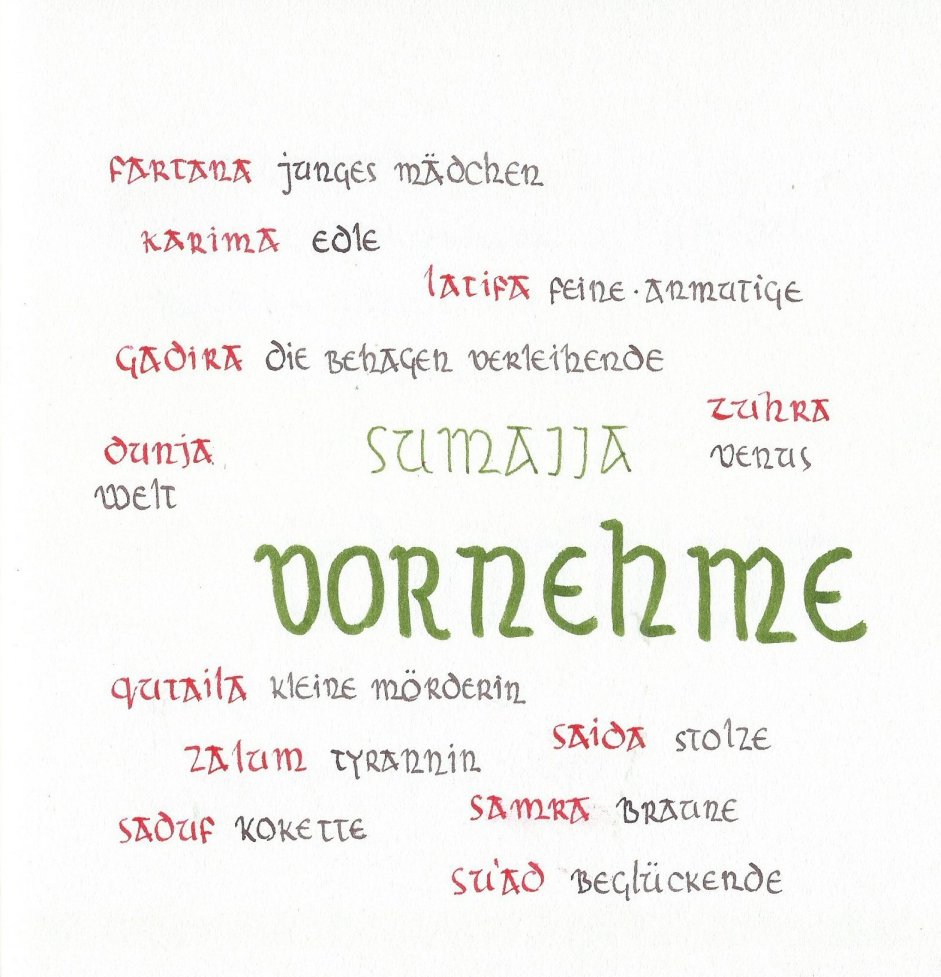 Fartana junges Mädchen
Karima Edle
Latifa Feine · Anmutige
Gadira die Behagen Verleihende
Zuhra
Venus
Dunja
Welt
SUMAJJA
VORNEHME
Qutaila kleine Mörderin
Saida Stolze
Zalum Tyrannin
Samra Braune
Saduf Kokette
Su'ad Beglückende